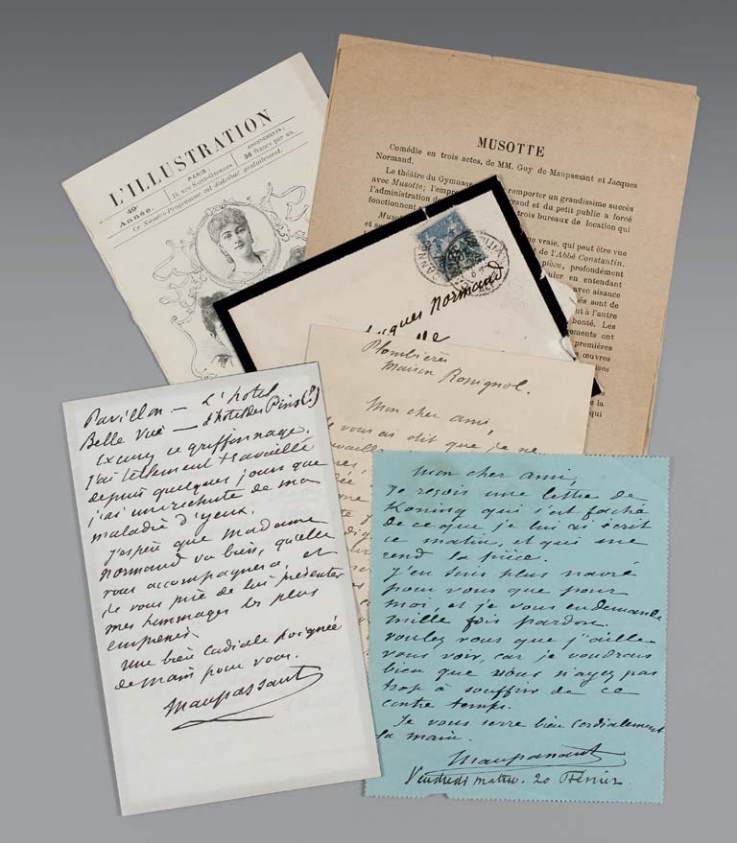 L'ILLUSTRATION
49e
Année.
PARIS
ABONNEMENTS:
36 francs par an.
MUSOTTE
Comédie en trois actes, de MM. Guy de Maupassant et Jacques
Normand.
Le théâtre du Gymnase
remporter un grandissime succès
avec Musotte; l'emp
rand et du petit public a forcé
l'administration d
trois bureaux de location qui
fonctionnent
Muso
vraie, qui peut être vue
et s
t de l'Abbé Constantin.
pièce, profondément
uler en entendant
avec aisance
és sont de
t à l'autre
bonté. Les
ments ont
premières
œuvres
qui
Jacques Normand
Plombières
Maison Rosignol.
Mon cher ami,
vous ai dit que je ne
Pavillon — L'hotel
Belle Vue — d'hotel des Pins (?)
Excusez ce griffonnage.
J'ai tellement travaillé
depuis quelques jours que
j'ai une rechute de ma
maladie d'yeux.
J'espère que Madame
Normand va bien, qu'elle
vous accompagnera, et
je vous prie de lui présenter
mes hommages les plus
empressés.
Une bien cordiale poignée
de main pour vous.
Maupassant
Mon cher ami,
Je reçois une lettre de
Koning qui s'est faché
de ce que je lui ai écrit
ce matin, et qui me
rend la pièce.
J'en suis plus navré
pour vous que pour
moi, et je vous en demande
mille fois pardon.
Voulez vous que j'aille
vous voir, car je voudrais
bien que vous n'ayez pas
trop à souffrir de ce
contre temps.
Je vous serre bien cordialement
la main.
Maupassant
Vendredi matin. 20 Février